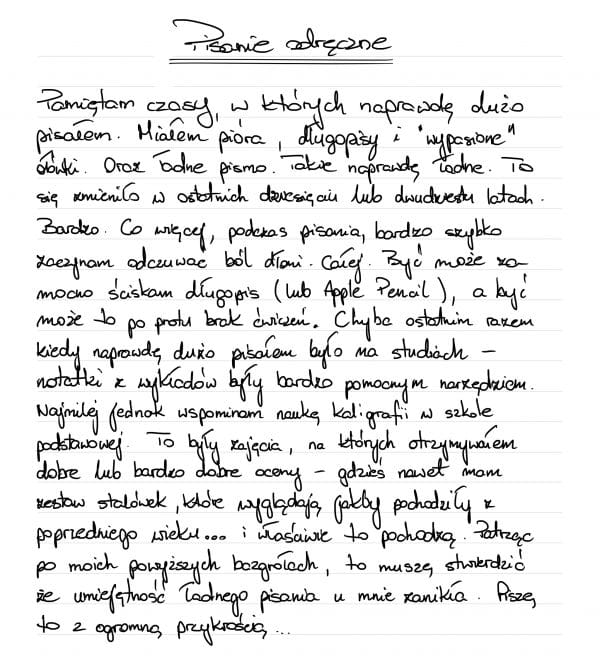 Pisanie odręczne
Pamiętam czasy, w których naprawdę dużo
pisałem. Miałem pióra, długopisy i "wypasione"
ołówki. Oraz ładne pismo. Takie naprawdę ładne. To
się zmieniło w ostatnich dziesięciu lub dwudziestu latach.
Bardzo. Co więcej, podczas pisania, bardzo szybko
zaczynam odczuwać ból dłoni. Całej. Być może za-
mocno ściskam długopis (lub Apple Pencil), a być
może to po protu brak ćwiczeń. Chyba ostatnim razem
kiedy naprawdę dużo pisałem było na studiach –
notatki z wykładów były bardzo pomocnym narzędziem.
Najmilej jednak wspominam naukę kaligrafii w szkole
podstawowej. To były zajęcia, na których otrzymywałem
dobre lub bardzo dobre oceny – gdzieś nawet mam
zestaw stalówek, które wyglądają jakby pochodziły z
poprzedniego wieku... i właściwie to pochodzą. Patrząc
po moich powyższych bazgrołach, to muszę stwierdzić
że umiejętność ładnego pisania u mnie zanikła. Piszę
to z ogromną przykrością...